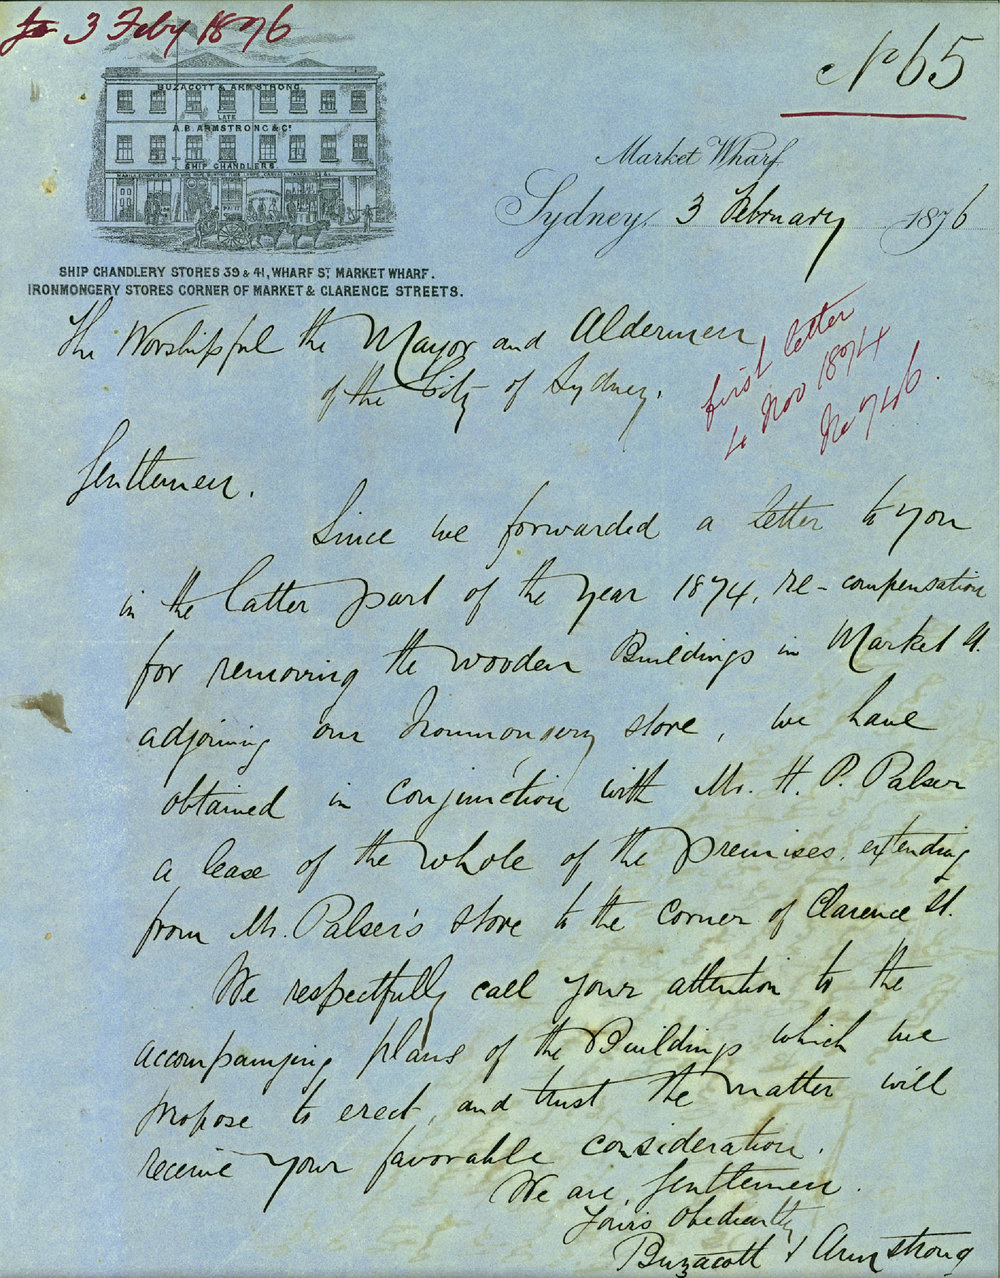 3 Feby 1876
No 65
BUZACOTT & ARMSTRONG.
LATE
A.B. ARMSTRONG & Co.
SHIP CHANDLERS
Market Wharf
Sydney, 3 February 1876
SHIP CHANDLERY STORES 39 & 41, WHARF ST. MARKET WHARF.
IRONMONGERY STORES CORNER OF MARKET & CLARENCE STREETS.
The Worshipful the Mayor and Aldermen
of the City of Sydney.
first letter
4 Nov 1874
No 746.
Gentlemen.
Since we forwarded a letter to you
in the latter part of the year 1874, re-compensation
for removing the wooden Buildings in Market St.
adjoining our Ironmongery store, we have
obtained in conjunction with Mr. H. P. Palser
a lease of the whole of the premises extending
from Mr. Palser's store to the corner of Clarence St.
We respectfully call your attention to the
accompanying plans of the Buildings which we
propose to erect, and trust the matter will
receive your favorable consideration.
We are, Gentlemen.
Yours Obediently
Buzacott & Armstrong